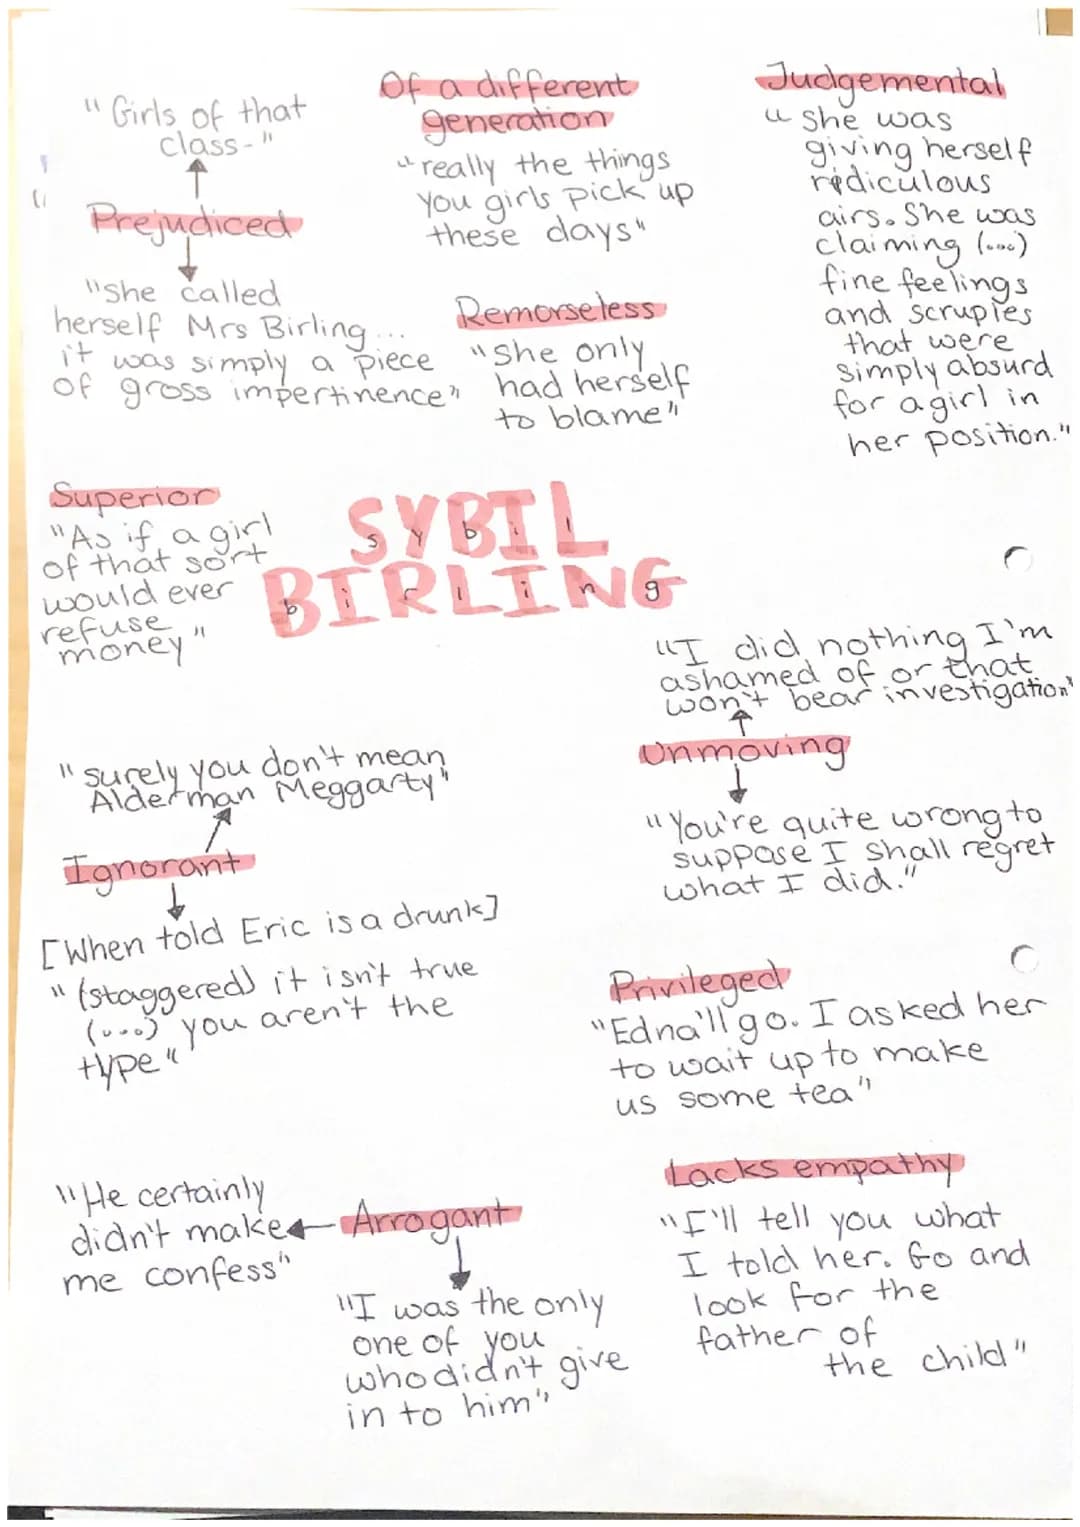 "Girls of that
class-"
Prejudiced
"she called
herself Mrs Birling...
it was simply a piece
of gross impertinence"
Of a different
generation
"really the things
you girls pick up
these days"
Remorseless
"she only
had herself
to blame"
Judgemental
"she was
giving herself
rediculous
airs. She was
claiming (...)
fine feelings
and scruples
that were
simply absurd
for a girl in
her position."
Superior
"As if a girl
of that sort
would ever
refuse
money"
SYBIL
sybil
BIRLING
birling
"I did nothing I'm
ashamed of or that
won't bear investigation"
Unmoving
"You're quite wrong to
suppose I shall regret
what I did."
"surely you don't mean
Alderman Meggarty"
Ignorant
[When told Eric is a drunk]
"(staggered) it isn't true
(...) you aren't the
type"
Privileged
"Edna'll go. I asked her
to wait up to make
us some tea"
"He certainly
didn't make
me confess"
Arrogant
"I was the only
one of you
who didn't give
in to him"
Lacks empathy
"I'll tell you what
I told her. Go and
look for the
father of
the child"